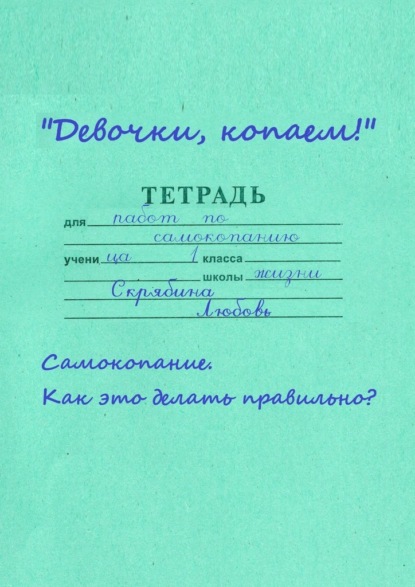 "Девочки, копаем!"
ТЕТРАДЬ
для работ по
самокопанию
учени ца 1 класса
школы жизни
Скрябина
Любовь
Самокопание.
Как это делать правильно?